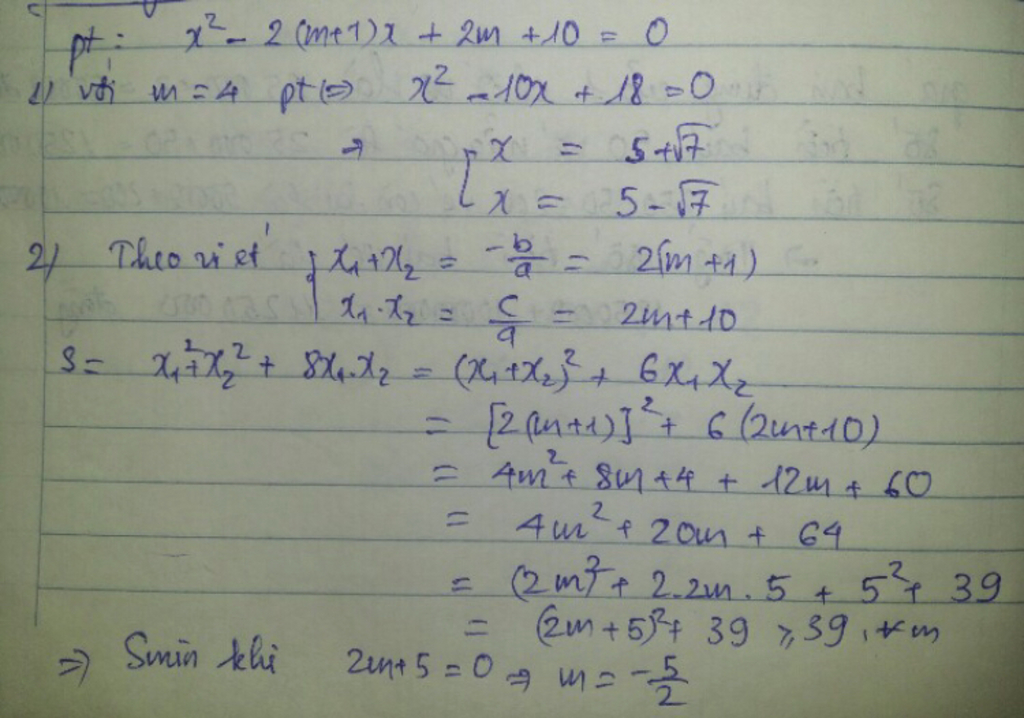 pt: x² - 2(m+1)x + 2m + 10 = 0
1) với m = 4 pt ⇔ x² - 10x + 18 = 0
⇒ [ x = 5 + √7
x = 5 - √7
2) Theo viet { x₁ + x₂ = -b/a = 2(m+1)
x₁.x₂ = c/a = 2m + 10
S = x₁² + x₂² + 8x₁.x₂ = (x₁ + x₂)² + 6x₁x₂
= [2(m+1)]² + 6(2m+10)
= 4m² + 8m + 4 + 12m + 60
= 4m² + 20m + 64
= (2m)² + 2.2m.5 + 5² + 39
= (2m+5)² + 39 ≥ 39, ∀m
⇒ Smin khi 2m+5 = 0 ⇒ m = -5/2